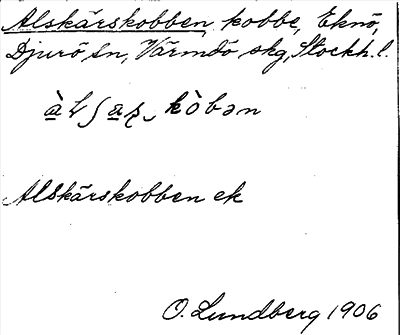 Alskärskobben, kobbe, Eknö,
Djurö sn, Värmdö skg, Stockh. l.
Alskärskobben ek
O. Lundberg 1906